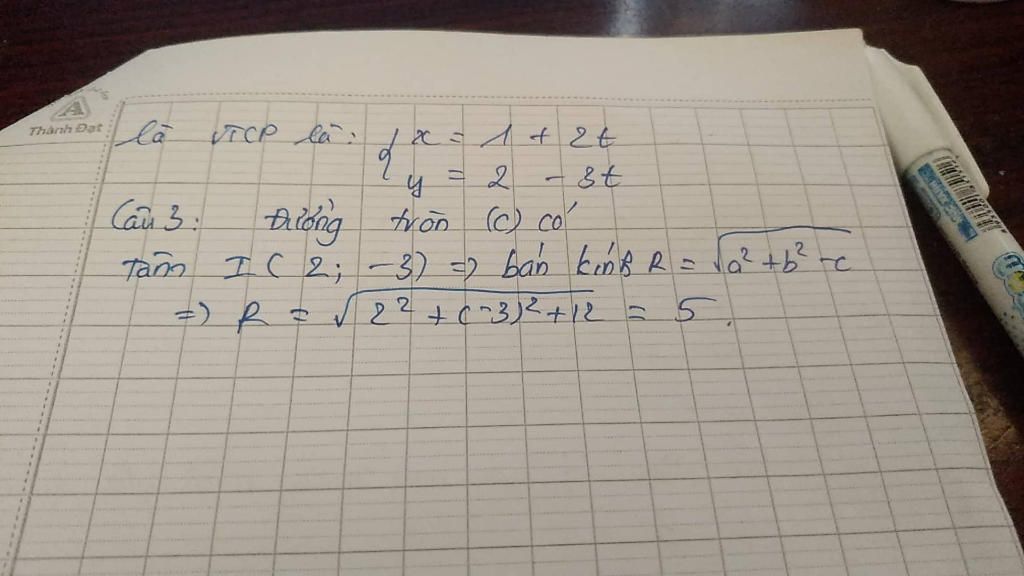 Thành Đạt
là VTCP là: { x = 1 + 2t
y = 2 - 3t
Câu 3: Đường tròn (C) có
tâm I ( 2; -3) => bán kính R = √a² + b² - c
=> R = √2² + (-3)² + 12 = 5.